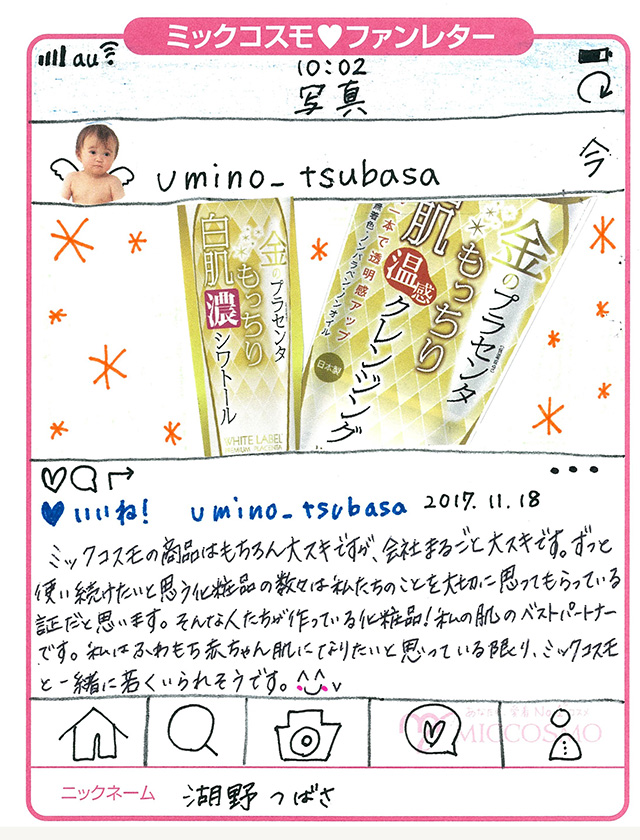 ミックコスモ♥ファンレター
au
10:02
写真
umino_tsubasa
今
金のプラセンタ
もっちり
白肌濃シワトール
WHITE LABEL
PREMIUM PLACENTA
金のプラセンタ
もっちり
肌温感クレンジング
一本で透明感アップ
無着色・ノンパラベン・ノンオイル
日本製
♥いいね! umino_tsubasa 2017.11.18
ミックコスモの商品はもちろん大スキですが、会社まるごと大スキです。ずっと
使い続けたいと思う化粧品の数々は私たちのことを大切に思ってもらっている
証だと思います。そんな人たちが作っている化粧品!私の肌のベストパートナー
です。私はふわもち赤ちゃん肌になりたいと思っている限り、ミックコスモ
と一緒に若くいられそうです。
MICCOSMO
ニックネーム 湖野つばさ